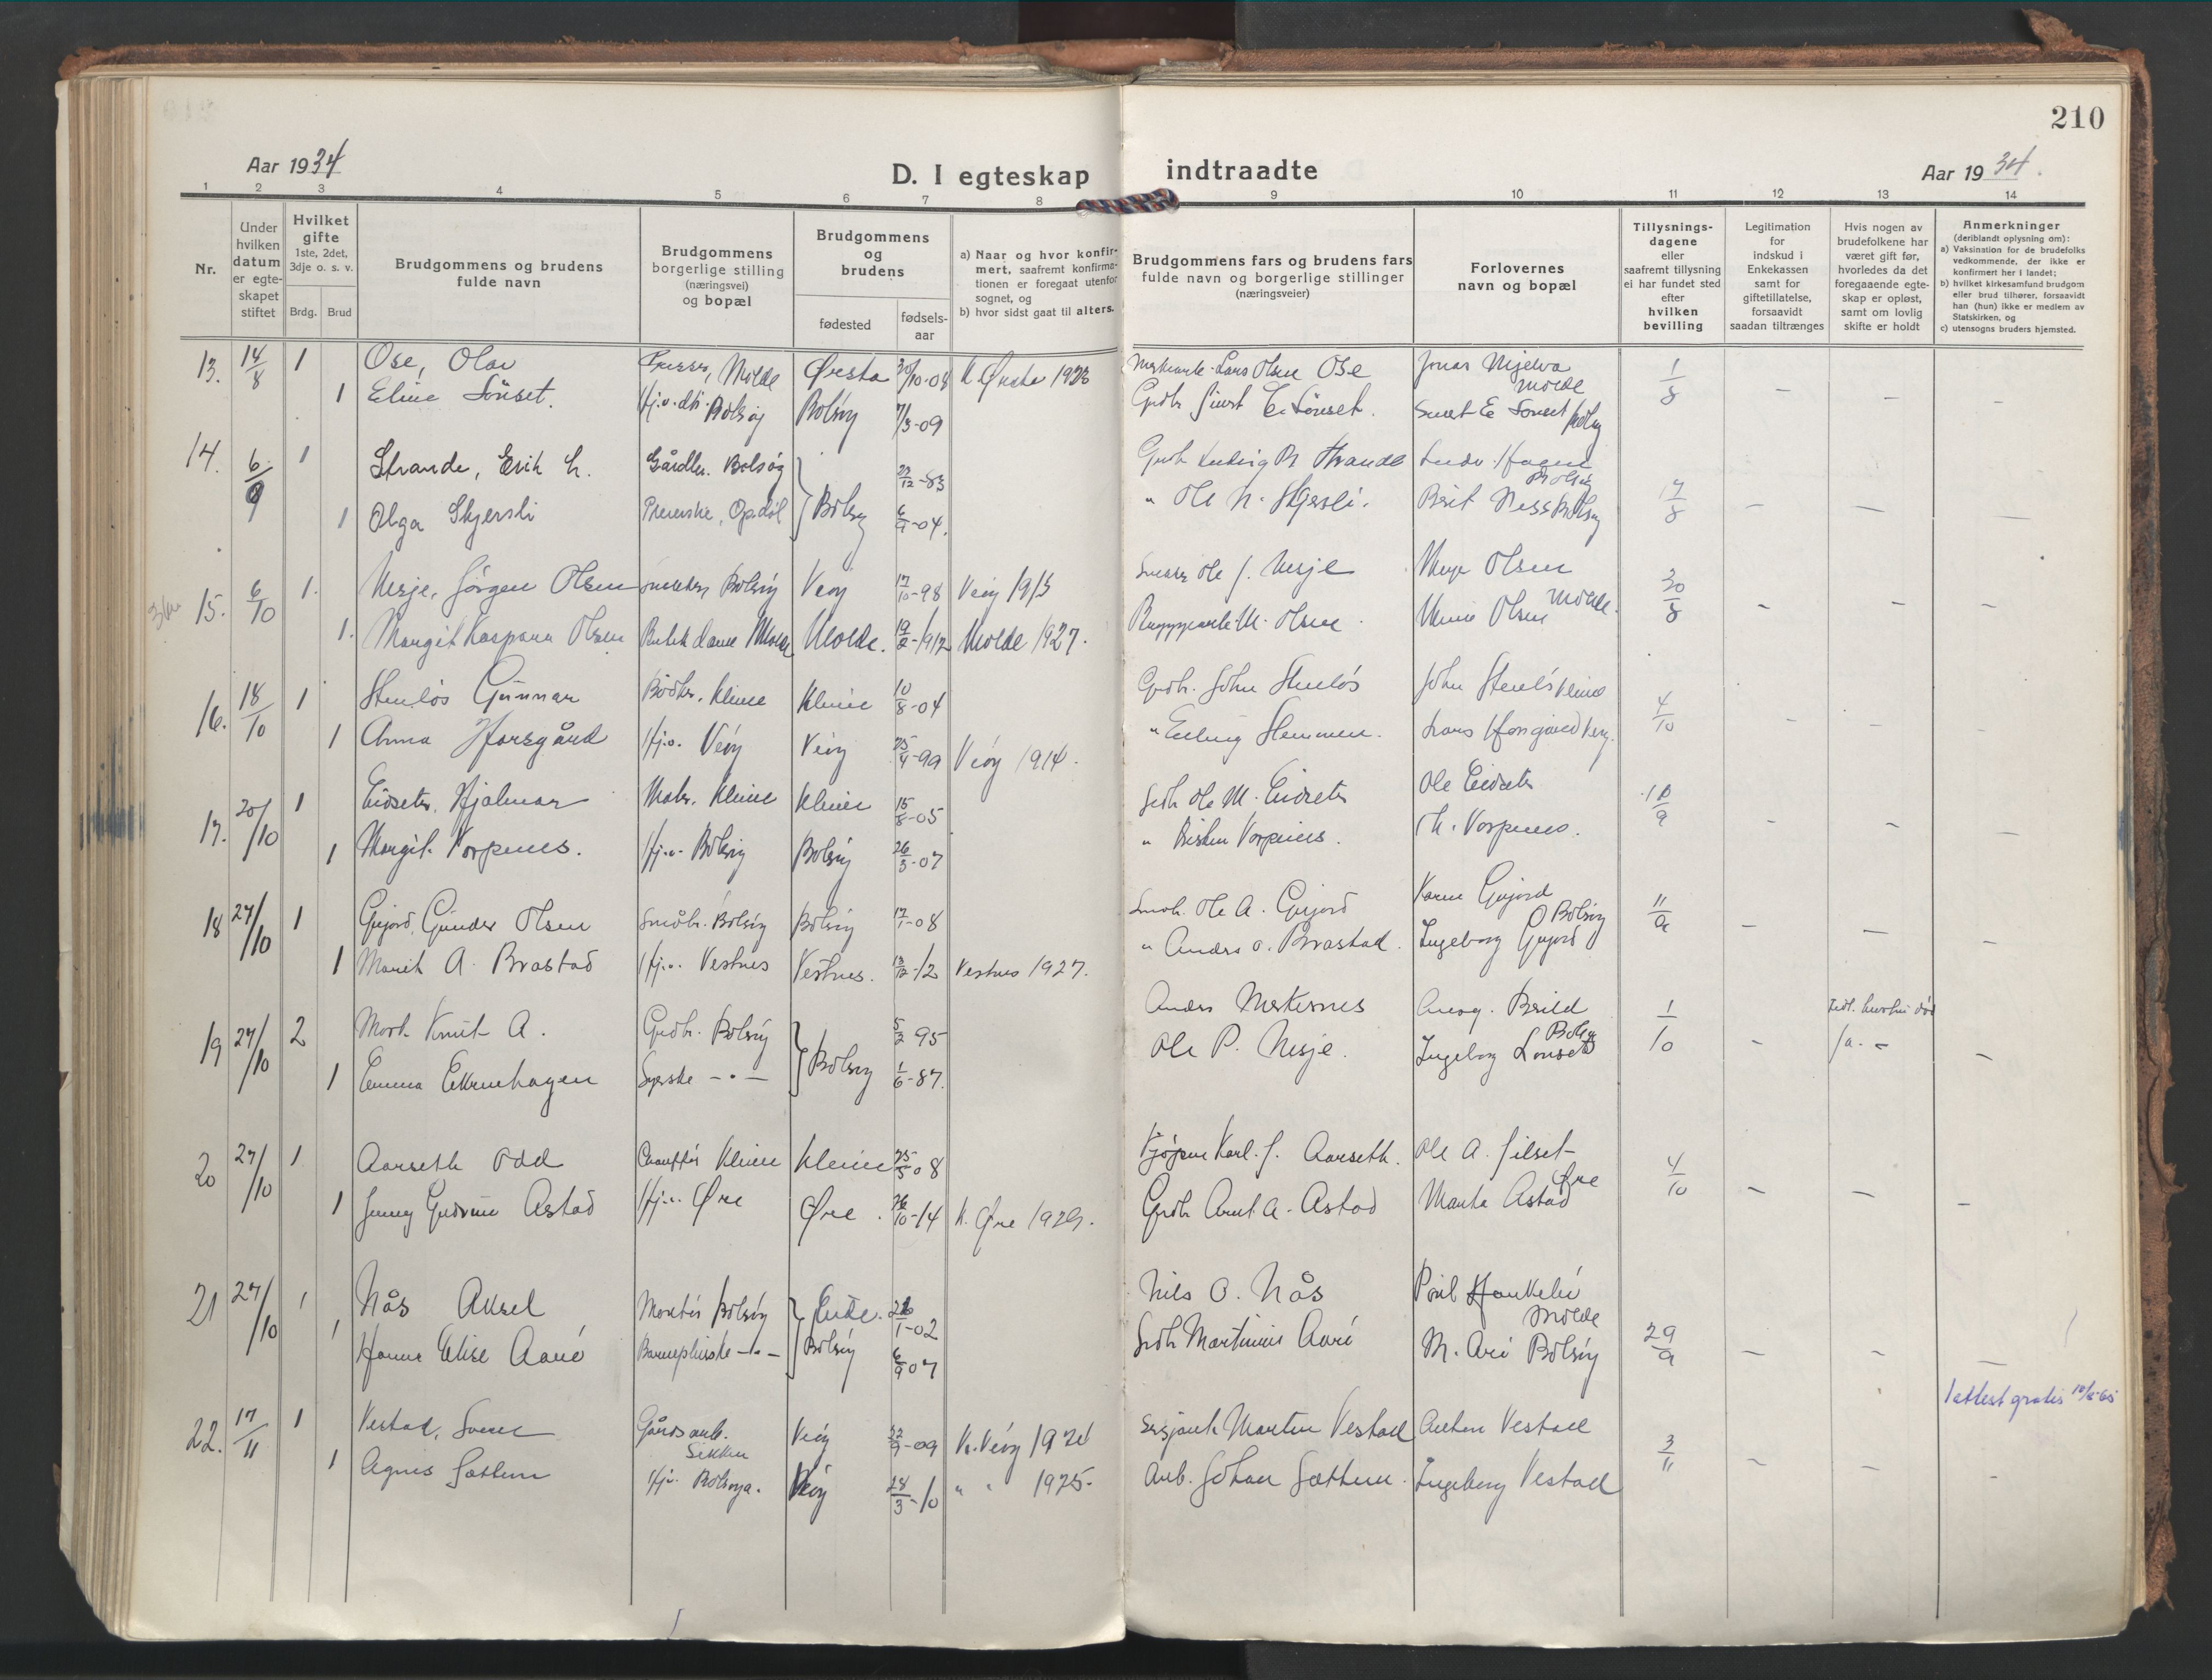 210
Aar 1934
D. I egteskap indtraadte
Aar 1934.
1 2 3 4 5 6 7 8 9 10 11 12 13 14
Nr.
Under hvilken datum er egteskapet stiftet
Hvilket gifte
1ste, 2det, 3dje o. s. v.
Brdg. Brud
Brudgommens og brudens fulde navn
Brudgommens borgerlige stilling (næringsvei) og bopæl
Brudgommens og brudens
fødested
fødsels-aar
a) Naar og hvor konfirmert, saafremt konfirmationen er foregaat utenfor sognet, og
b) hvor sidst gaat til alters.
Brudgommens fars og brudens fars fulde navn og borgerlige stillinger (næringsveier)
Forlovernes navn og bopæl
Tillysnings-dagene eller saafremt tillysning ei har fundet sted efter hvilken bevilling
Legitimation for indskud i Enkekassen samt for giftetillatelse, forsaavidt saadan tiltrænges
Hvis nogen av brudefolkene har været gift før, hvorledes da det foregaaende egteskap er opløst, samt om lovlig skifte er holdt
Anmerkninger
(deriblandt oplysning om):
a) Vaksination for de brudefolks vedkommende, der ikke er konfirmert her i landet;
b) hvilket kirkesamfund brudgom eller brud tilhører, forsaavidt han (hun) ikke er medlem av Statskirken, og
c) utensogns bruders hjemsted.
13. 14/8 1 Ose, Olav Molde Ørsta 20/10-08 K Ørsta 1923 Lars Olsen Ose Jonas Mjelva Molde 1/8 - - -
1 Eline Sønset. Hj.v. dtr. Bolsøy Bolsøy 7/3-09 Grdbr Sivert E. Sønset. Sivert E Sønset Bolsøy
14. 6/9 1 Strande, Erik L. Gårdbr. Bolsøy Bolsøy 22/12-83 Grdb Ludvig R Strande Ludv. Hagen Bolsøy 17/8 - - -
1 Olga Skjersli Opdøl 6/9-04. " Ole N. Skjersli. Brit Ness Bolsøy
15. 6/10 1. Nesje, Jörgen Olsen Snekker Bolsøy Veøy 17/10-98 Veøy 1913 Snekker Ole J. Nesje Olsen Molde. 30/8 - - -
1. Margit Kaspara Olsen Butikdame Molde Molde. 19/2-1912 Molde 1927. M. Olsen. Olsen
16. 18/10 1 Stenløs Gunnar Bödker, Kleive Kleive 10/8-04 Grdb. John Stenløs John Stenløs Kleive 4/10 - - -
1 Anna Horsgård Hj.v. Veøy Veøy 25/4-99 Veøy 1914. " Erling Hemmen. Lars Horsgård Veøy.
17. 20/10 1 Eidseter, Hjalmar Maler, Kleive Kleive 15/8-05 Grdb Ole M. Eidseter Ole Eidseter 18/9 - - -
1 Margit Vorpenes. Hj.v. Bolsøy Bolsøy 26/3-07 " Kristen Vorpenes. Th. Vorpenes.
18 27/10 1 Gujord, Gunder Olsen Småbr. Bolsøy Bolsøy 17/1-08 Småb. Ole A. Gujord Karen Gujord Bolsøy 11/9 - - -
1 Marit A. Brastad Hj.v. Vestnes Vestnes. 13/12-12 Vestnes 1927. " Anders O. Brastad. Ingeborg Gujord
19 27/10 2 Mork Knut A. Grdb. Bolsøy Bolsøy 5/2 95 Anders Ingeborg Lønset Bolsøy 1/10 - ja - -
1 Emma Ekrenhagen Syerske - " - 1/6-87. Ole P. Nesje.
20 27/10 1 Aarseth Odd Chauffør Kleive Kleive 25/5-08 Kjøpm Karl J. Aarseth. Ole A. Silset Øre 4/10 - - -
1 Jenny Gudrun Astad Hj.v. Øre Øre. 26/10-14 K. Øre 1929. Grdb Arnt A. Astad Marta Astad
21 27/10 1 Nås Aksel Montør Bolsøy 1-02 Nils O. Nås Molde 29/9 - - -
1 Hanna Elise Aarø Barnepleierske - " - Bolsøy 6/9 07 Grdb Martinus Aarø M. Arø Bolsøy
1 attest gratis
22. 17/11 1 Vestad, Sverre Gårdsarb. Sekken Veøy 22/9-09 K. Veøy 1924 Martin Vestad Anton Vestad 3/11 - - -
1 Agnes Sættem Hj.v. Bolsøya. Veøy 28/3-10 " " 1925. Arb. Johan Sættem. Ingeborg Vestad